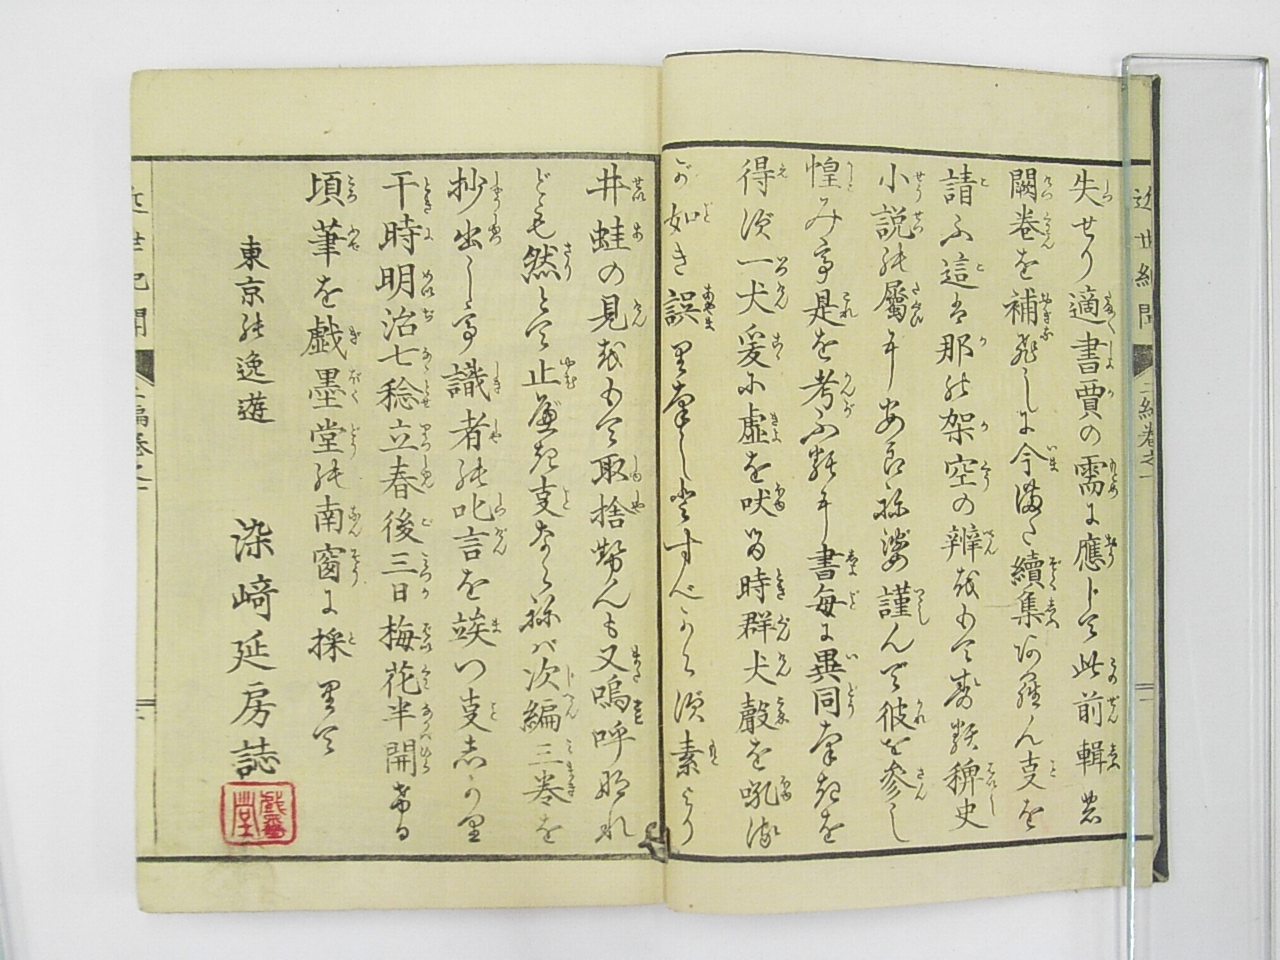 近世紀聞
二編巻之一
失せり適書賈の需に應じて此前輯の
闕巻を補ひしに今満た續集あらん支を
請ふ這は那の架空の辨をもて綴る稗史
小説の屬にあらねば謹んで彼を参し
惶み之を考ふるに書毎に異同なきを
得ず一犬爰に虚を吠る時群犬聲を吼る
が如き誤りなしとすべからず素より
井蛙の見をもて取捨せんも又嗚呼なれ
ども然とて止べき支ならねば次編三巻を
抄出して識者の叱言を竢つ支しかり
干時明治七稔立春後三日梅花半開する
頃筆を戯墨堂の南窗に採りて
東京の逸遊
染崎延房誌